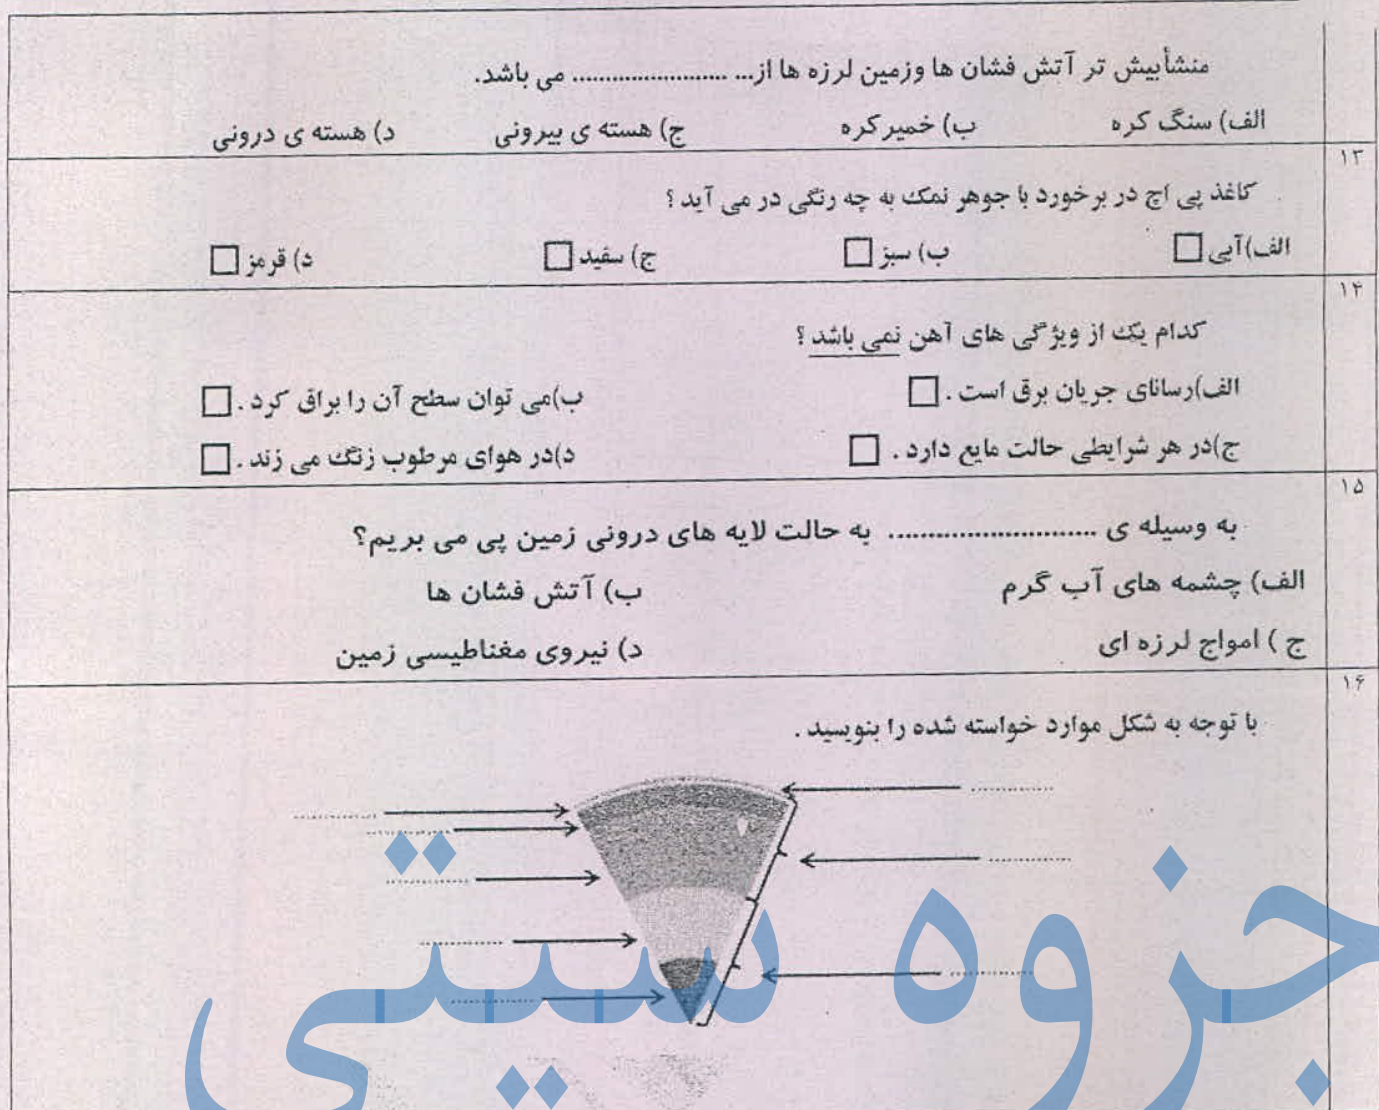 منشأبیش تر آتش فشان ها وزمین لرزه ها از... ........................ می باشد.
الف) سنگ کره ب) خمیرکره ج) هسته ی بیرونی د) هسته ی درونی
۱۳
کاغذ پی اچ در برخورد با جوهر نمک به چه رنگی در می آید ؟
الف)آبی ب) سبز ج) سفید د) قرمز
۱۴
کدام یک از ویژگی های آهن نمی باشد ؟
الف)رسانای جریان برق است . ب)می توان سطح آن را براق کرد .
ج)در هر شرایطی حالت مایع دارد . د)در هوای مرطوب زنگ می زند .
۱۵
به وسیله ی .......................... به حالت لایه های درونی زمین پی می بریم؟
الف) چشمه های آب گرم ب) آتش فشان ها
ج ) امواج لرزه ای د) نیروی مغناطیسی زمین
۱۶
با توجه به شکل موارد خواسته شده را بنویسید .
جزوه سیتی